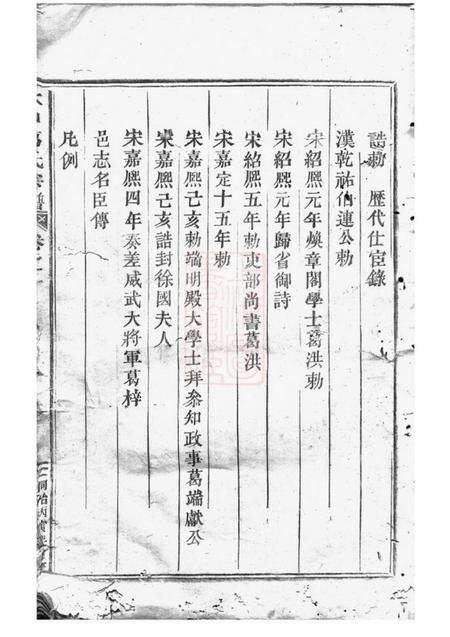 誥勅　歷代仕宦錄
漢乾祐伯連公勅
宋紹熙元年煥章閣學士葛洪勅
宋紹熙元年歸省御詩
宋紹熙五年勅吏部尚書葛洪
宋嘉定十五年勅
宋嘉熙己亥勅端明殿大學士拜叅知政事葛端獻公
宋嘉熙己亥誥封徐國夫人
宋嘉熙四年奏差咸武大將軍葛梓
邑志名臣傳
凡例
葛氏宗譜
同治丙寅